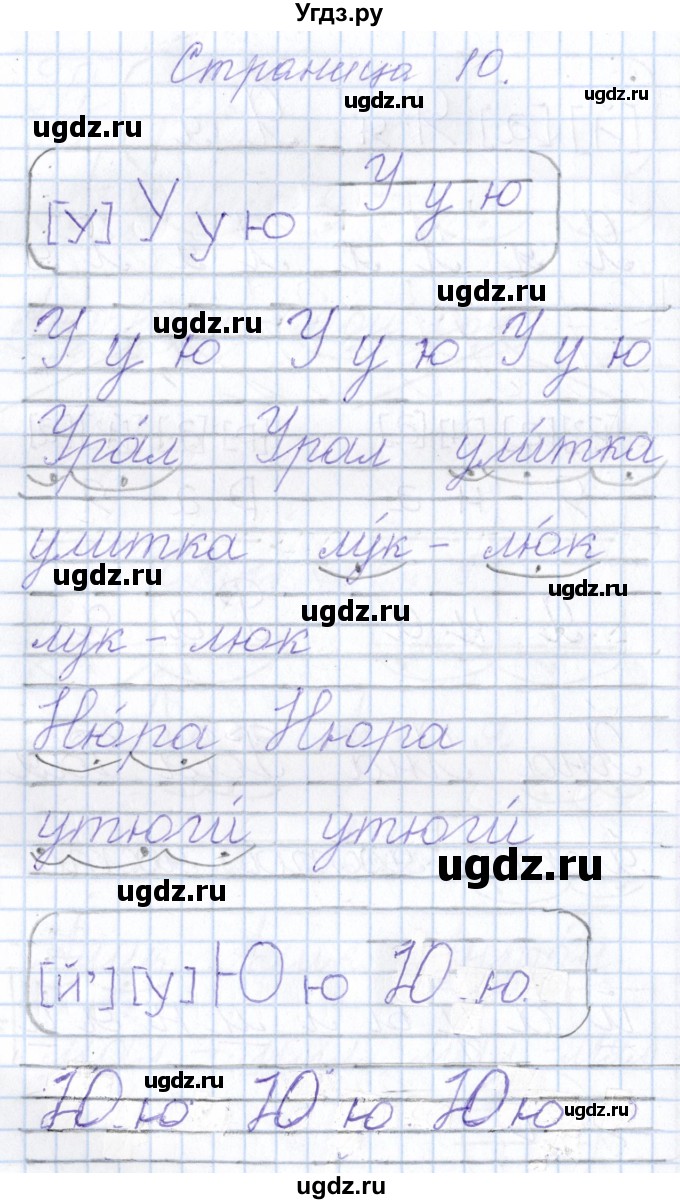 Угдз.ру
Страница 10.
ugdz.ru
ugdz.ru
ugdz.ru
[у] У у ю У у ю
ugdz.ru
ugdz.ru
У у ю У у ю У у ю
Ура́л Урал ули́тка
улитка лу́к - лю́к
ugdz.ru
ugdz.ru
ugdz.ru
лук - люк
Ню́ра Нюра
утюги́ утюги́
ugdz.ru
ugdz.ru
[й'] [у] Ю ю Ю ю.
ugdz.ru
Ю ю Ю ю Ю ю
ugdz.ru
ugdz.ru